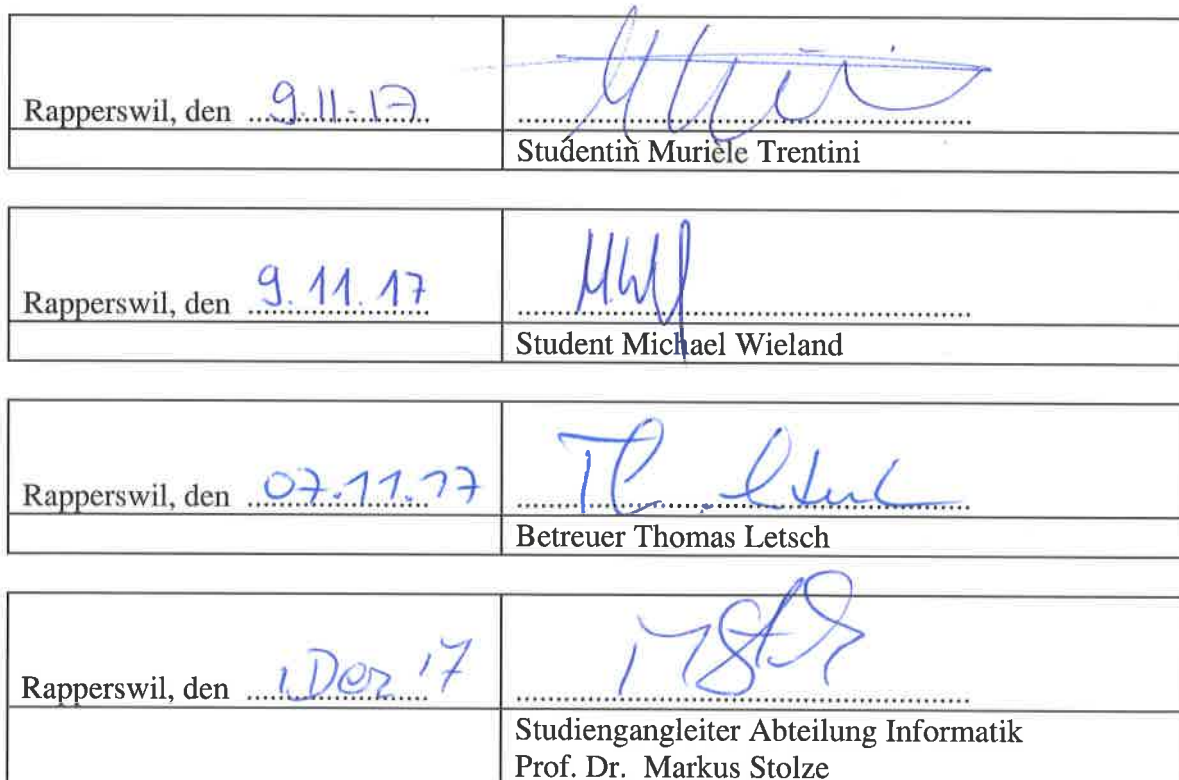 Rapperswil, den 9.11.17
Studentin Murièle Trentini
Rapperswil, den 9.11.17
Student Michael Wieland
Rapperswil, den 07.11.17
Betreuer Thomas Letsch
Rapperswil, den 1. Dez 17
Studiengangleiter Abteilung Informatik
Prof. Dr. Markus Stolze